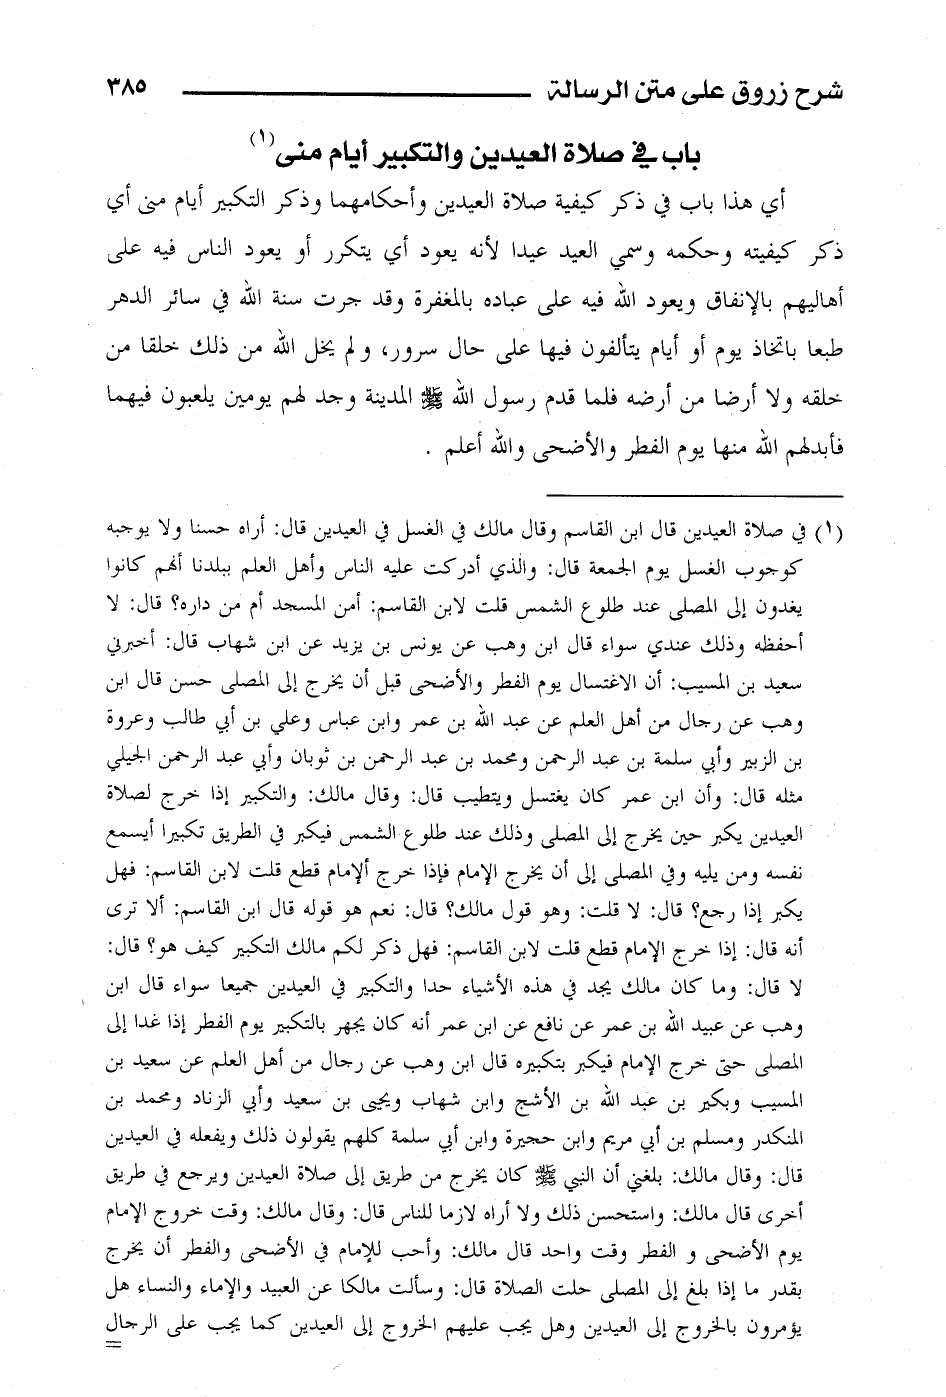 شرح زروق على متن الرسالة ٣٨٥
باب في صلاة العيدين والتكبير أيام منى (١)
أي هذا باب في ذكر كيفية صلاة العيدين وأحكامهما وذكر التكبير أيام منى أي
ذكر كيفيته وحكمه وسمي العيد عيدا لأنه يعود أي يتكرر أو يعود الناس فيه على
أهاليهم بالإنفاق ويعود الله فيه على عباده بالمغفرة وقد جرت سنة الله في سائر الدهر
طبعا باتخاذ يوم أو أيام يتألفون فيها على حال سرور، ولم يخل الله من ذلك خلقا من
خلقه ولا أرضا من أرضه فلما قدم رسول الله ﷺ المدينة وجد لهم يومين يلعبون فيهما
فأبدلهم الله منها يوم الفطر والأضحى والله أعلم .
(١) في صلاة العيدين قال ابن القاسم وقال مالك في الغسل في العيدين قال: أراه حسنا ولا يوجبه
كوجوب الغسل يوم الجمعة قال: والذي أدركت عليه الناس وأهل العلم ببلدنا أنهم كانوا
يغدون إلى المصلى عند طلوع الشمس قلت لابن القاسم: أمن المسجد أم من داره؟ قال: لا
أحفظه وذلك عندي سواء قال ابن وهب عن يونس بن يزيد عن ابن شهاب قال: أخبرني
سعيد بن المسيب: أن الاغتسال يوم الفطر والأضحى قبل أن يخرج إلى المصلى حسن قال ابن
وهب عن رجال من أهل العلم عن عبد الله بن عمر وابن عباس وعلي بن أبي طالب وعروة
بن الزبير وأبي سلمة بن عبد الرحمن ومحمد بن عبد الرحمن بن ثوبان وأبي عبد الرحمن الجيلي
مثله قال: وأن ابن عمر كان يغتسل ويتطيب قال: وقال مالك: والتكبير إذا خرج لصلاة
العيدين يكبر حين يخرج إلى المصلى وذلك عند طلوع الشمس فيكبر في الطريق تكبيرا أيسمع
نفسه ومن يليه وفي المصلى إلى أن يخرج الإمام فإذا خرج ألإمام قطع قلت لابن القاسم: فهل
يكبر إذا رجع؟ قال: لا قلت: وهو قول مالك؟ قال: نعم هو قوله قال ابن القاسم: ألا ترى
أنه قال: إذا خرج الإمام قطع قلت لابن القاسم: فهل ذكر لكم مالك التكبير كيف هو؟ قال:
لا قال: وما كان مالك يجد في هذه الأشياء حدا والتكبير في العيدين جميعا سواء قال ابن
وهب عن عبيد الله بن عمر عن نافع عن ابن عمر أنه كان يجهر بالتكبير يوم الفطر إذا غدا إلى
المصلى حتى خرج الإمام فيكبر بتكبيره قال ابن وهب عن رجال من أهل العلم عن سعيد بن
المسيب وبكير بن عبد الله بن الأشج وابن شهاب ويحيى بن سعيد وأبي الزناد ومحمد بن
المنكدر ومسلم بن أبي مريم وابن حجيرة وابن أبي سلمة كلهم يقولون ذلك ويفعله في العيدين
قال: وقال مالك: بلغني أن النبي ﷺ كان يخرج من طريق إلى صلاة العيدين ويرجع في طريق
أخرى قال مالك: واستحسن ذلك ولا أراه لازما للناس قال: وقال مالك: وقت خروج الإمام
يوم الأضحى و الفطر وقت واحد قال مالك: وأحب للإمام في الأضحى والفطر أن يخرج
بقدر ما إذا بلغ إلى المصلى حلت الصلاة قال: وسألت مالكا عن العبيد والإماء والنساء هل
يؤمرون بالخروج إلى العيدين وهل يجب عليهم الخروج إلى العيدين كما يجب على الرجال
=